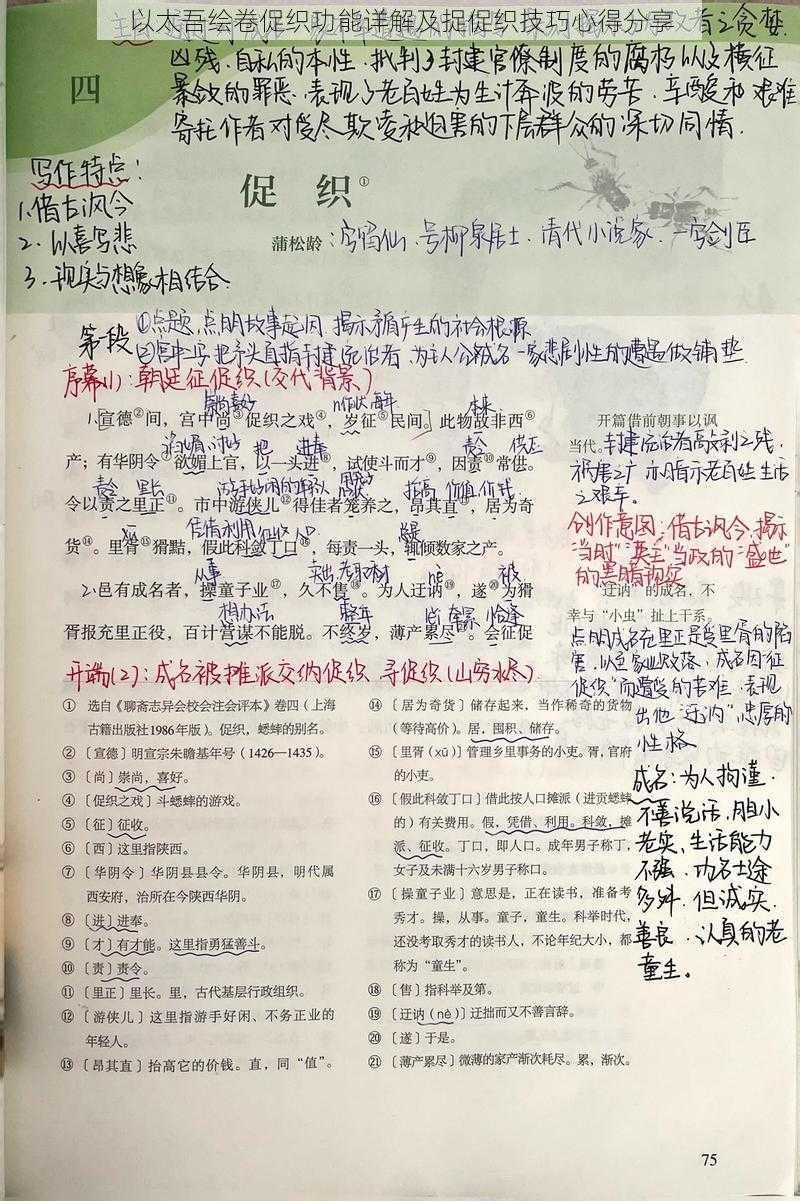 以太吾绘卷促织功能详解及捉促织技巧心得分享
凶残、自私的本性，批判了封建官僚制度的腐朽以及横征
暴敛的罪恶，表现了老百姓为生计奔波的劳苦、辛酸和艰难
寄托作者对受尽欺凌和迫害的下层群众的深切同情．
四
写作特点：
1、借古讽今
2、以喜写悲
3、现实与想象相结合．
促 织①
蒲松龄：字留仙、号柳泉居士，清代小说家，一字剑臣
第一段
①点题，点明故事起因，揭示矛盾产生的社会根源
序幕(1)：朝廷征促织(交代背景)
崇尚喜好
每年
本来
1.宣德②间，宫中尚③促织之戏④，岁征⑤民间。此物故非西⑥
把 进奉
产；有华阴令⑦欲媚上官，以一头进⑧，试使斗而才⑨，因责⑩常供。
责令 里长
抬高 价值，价钱
令以责之里正⑪。市中游侠儿⑫得佳者笼养之，昂其直⑬，居为奇
货⑭。里胥⑮猾黠，假此科敛丁口⑯，每责一头，辄倾数家之产。
从事
nè
被
2.邑有成名者，操童子业⑰，久不售⑱。为人迂讷⑲，遂⑳为猾
想办法
胥报充里正役，百计营谋不能脱。不终岁，薄产累尽㉑。会征促
开端(2)：成名被摊派交纳促织，寻促织(山穷水尽)
开篇借前朝事以讽
当代。
创作意图：借古讽今，揭示
"当时"英主"当政的"盛世"
的黑暗现实
"迂讷"的成名，不
幸与"小虫"扯上干系。
点明成名充里正是受里胥的陷
害，以至家业败落，成名因"征
促织"而遭受的苦难，表现
出他"迂讷"忠厚的
性格
成名：为人拘谨．
不善说话，胆小
老实、生活能力
不强，功名仕途
多舛，但诚实、
善良、认真的老
童生。
① 选自《聊斋志异会校会注会评本》卷四（上海
古籍出版社1986年版）。促织，蟋蟀的别名。
②〔宣德〕明宣宗朱瞻基年号（1426—1435）。
③〔尚〕崇尚，喜好。
④〔促织之戏〕斗蟋蟀的游戏。
⑤〔征〕征收。
⑥〔西〕这里指陕西。
⑦〔华阴令〕华阴县县令。华阴县，明代属
西安府，治所在今陕西华阴。
⑧〔进〕进奉。
⑨〔才〕有才能。这里指勇猛善斗。
⑩〔责〕责令。
⑪〔里正〕里长。里，古代基层行政组织。
⑫〔游侠儿〕这里指游手好闲、不务正业的
年轻人。
⑬〔昂其直〕抬高它的价钱。直，同"值"。
⑭〔居为奇货〕储存起来，当作稀奇的货物
（等待高价）。居，囤积、储存。
⑮〔里胥（xū）〕管理乡里事务的小吏。胥，官府
的小吏。
⑯〔假此科敛丁口〕借此按人口摊派（进贡蟋蟀
的）有关费用。假，凭借、利用。科敛，摊
派、征收。丁口，即人口。成年男子称丁，
女子及未满十六岁男子称口。
⑰〔操童子业〕意思是，正在读书，准备考
秀才。操，从事。童子，童生。科举时代，
还没考取秀才的读书人，不论年纪大小，都
称为"童生"。
⑱〔售〕指科举及第。
⑲〔迂讷（nè）〕迂拙而又不善言辞。
⑳〔遂〕于是。
㉑〔薄产累尽〕微薄的家产渐次耗尽。累，渐次。
75